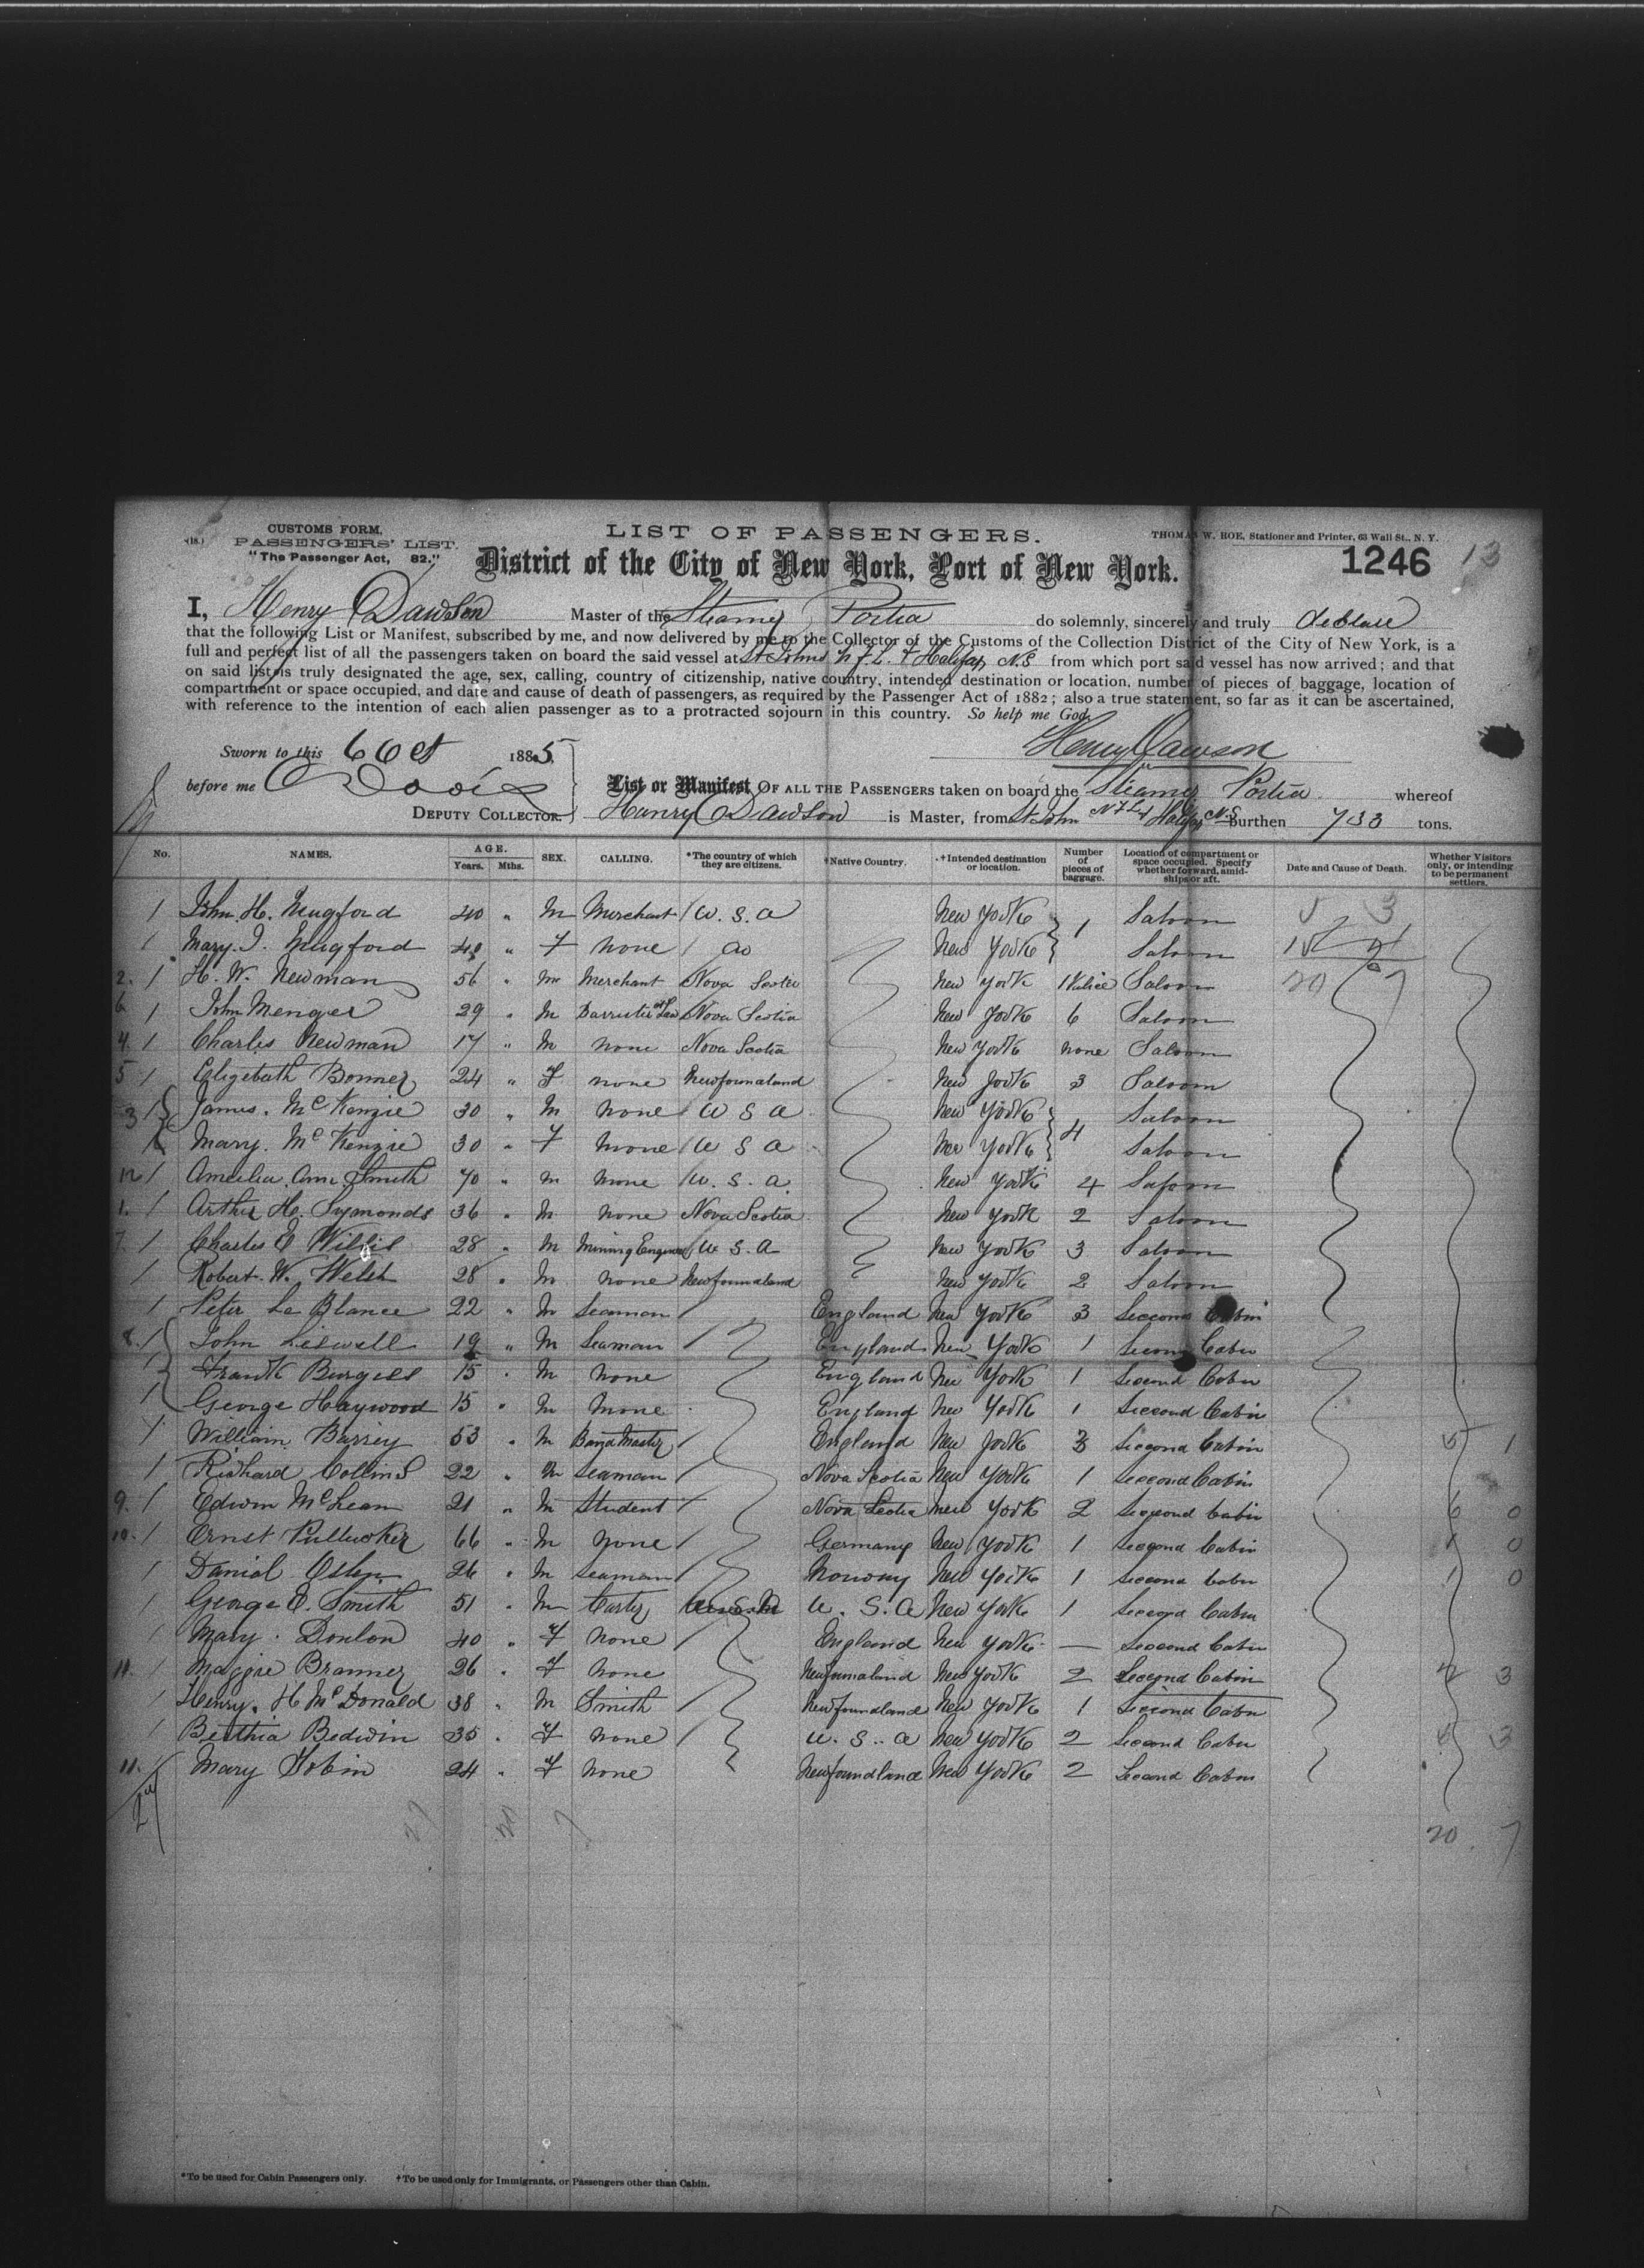 CUSTOMS FORM, LIST OF PASSENGERS. THOMAS W. HOE, Stationer and Printer, 63 Wall St., N. Y.
(18.) PASSENGERS' LIST.
"The Passenger Act, 82." District of the City of New York, Port of New York. 1246 13
I, Henry Dawson Master of the Steamer Portia do solemnly, sincerely and truly declare
that the following List or Manifest, subscribed by me, and now delivered by me to the Collector of the Customs of the Collection District of the City of New York, is a
full and perfect list of all the passengers taken on board the said vessel at St Johns N.F.L. & Halifax N.S from which port said vessel has now arrived; and that
on said list is truly designated the age, sex, calling, country of citizenship, native country, intended destination or location, number of pieces of baggage, location of
compartment or space occupied, and date and cause of death of passengers, as required by the Passenger Act of 1882; also a true statement, so far as it can be ascertained,
with reference to the intention of each alien passenger as to a protracted sojourn in this country. So help me God.
Henry Dawson
Sworn to this 6 Oct 1885
before me Davis
DEPUTY COLLECTOR.
List or Manifest OF ALL THE PASSENGERS taken on board the Steamer Portia whereof
Henry Dawson is Master, from St John NFLd Halifax N.S. Burthen 733 tons.
No. NAMES. AGE. Years. Mths. SEX. CALLING. *The country of which they are citizens. †Native Country. †Intended destination or location. Number of pieces of baggage. Location of compartment or space occupied. Specify whether forward, amidships or aft. Date and Cause of Death. Whether Visitors only, or intending to be permanent settlers.
1 John. H. Mugford 40 " M Merchant U. S. A New York 1 Saloon
1 Mary. I. Mugford " F none do New York Saloon
2. 1 H. W. Newman 56 " M Merchant Nova Scotia New York 1 Valice Saloon
6 1 John Menger 29 " M Barrister at Law Nova Scotia New York 6 Saloon
4. 1 Charles Newman 17 " M none Nova Scotia New York none Saloon
5 1 Elizabeth Bonner 24 " F none Newfoundland New York 3 Saloon
3 1 James. McKenzie 30 " M none U S A New York 4 Saloon
1 Mary. McKenzie 30 " F none U S A New York Saloon
12 1 Amelia Ann Smith 70 " M none U. S. A. New York 4 Saloon
1. 1 Arthur H. Symonds 36 " M none Nova Scotia New York 2 Saloon
7. 1 Charles E Willis 28 " M Mining Engineer U S. A New York 3 Saloon
1 Robert. W. Welsh 28 " M none Newfoundland New York 2 Saloon
1 Peter Le Blance 22 " M Seaman England New York 3 Second Cabin
8. 1 John Liswell 19 " M Seaman England New York 1 Second Cabin
1 Frank Burgess 15 " M none England New York 1 Second Cabin
1 George Haywood 15 " M none England New York 1 Second Cabin
1 William Barrey 53 " M Band Master England New York 3 Second Cabin 1
1 Richard Collins 22 " M Seaman Nova Scotia New York 1 Second Cabin
9. 1 Edwin McLean 21 " M Student Nova Scotia New York 2 Second Cabin 6 0
10. 1 Ernst 66 " M none Germany New York 1 Second Cabin 1 0
1 Danial Oslen 26 " M Seaman Norway New York 1 Second Cabin 1 0
1 George E. Smith 51 " M U. S. A New York 1 Second Cabin
1 Mary. Donlon 40 " F none England New York — Second Cabin
11. 1 Maggie Branner 26 " F none Newfoundland New York 2 Second Cabin 3
1 Henry. H McDonald 38 " M Smith Newfoundland New York 1 Second Cabin
1 Berthia Bedwin 35 " F none U. S.. A New York 2 Second Cabin 3
11. Mary Tobin 24 " F none Newfoundland New York 2 Second Cabin
20 7
*To be used for Cabin Passengers only. †To be used only for Immigrants, or Passengers other than Cabin.